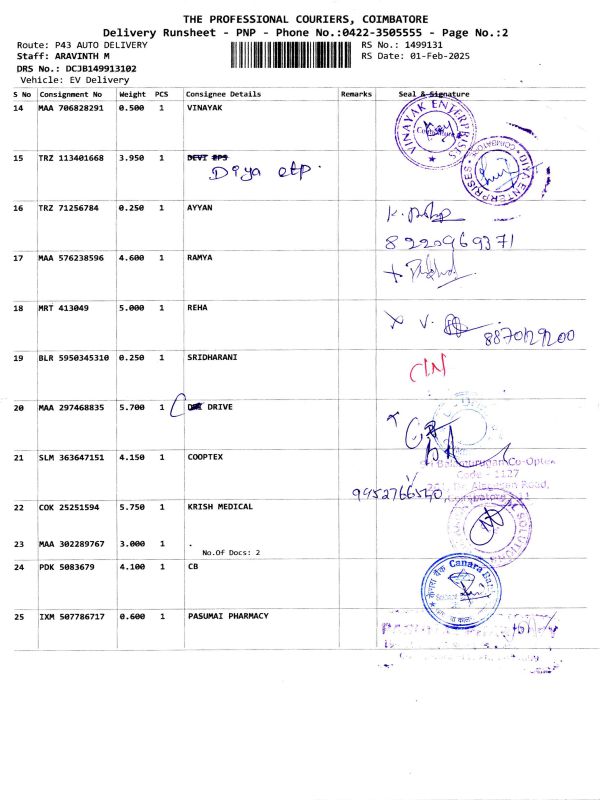 THE PROFESSIONAL COURIERS, COIMBATORE
Delivery Runsheet - PNP - Phone No.:0422-3505555 - Page No.:2
Route: P43 AUTO DELIVERY
RS No.: 1499131
Staff: ARAVINTH M
RS Date: 01-Feb-2025
DRS No.: DCJB149913102
Vehicle: EV Delivery
S No Consignment No Weight PCS Consignee Details Remarks Seal & Signature
14 MAA 706828291 0.500 1 VINAYAK
VINAYAK ENTERPRISES
Coimbatore
15 TRZ 113401668 3.950 1 DEVI
Diya etp.
DIYA ENTERPRISES
COIMBATORE
16 TRZ 71256784 0.250 1 AYYAN
8220969371
17 MAA 576238596 4.600 1 RAMYA
18 MRT 413049 5.000 1 REHA
x V.
8870129200
19 BLR 5950345310 0.250 1 SRIDHARANI
20 MAA 297468835 5.700 1 DRIVE
21 SLM 363647151 4.150 1 COOPTEX
Co-Optex
Code - 1127
Road,
9952766540
22 COK 25251594 5.750 1 KRISH MEDICAL
SOLUTIONS
23 MAA 302289767 3.000 1 .
No.Of Docs: 2
24 PDK 5083679 4.100 1 CB
केनरा बैंक Canara Bank
25 IXM 507786717 0.600 1 PASUMAI PHARMACY